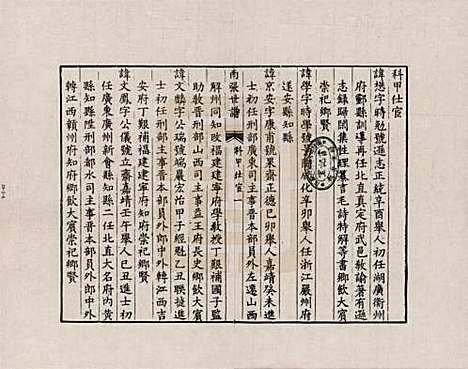 科甲仕宦
諱懋字時勉號遜志正統辛酉舉人初任湖廣衡州
府郴縣訓導再任北直真定府武邑教諭著有遜
志錄歸閑集性理纂言毛詩特解等書鄉飲大賓
崇祀鄉賢
諱學字時學號 成化辛卯舉人任浙江嚴州府
遂安縣知縣
諱京安字廣甫號 齋正德己卯舉人嘉靖癸未進
士初任刑部廣東司主事晉本部員外左遷山西
南張世譜
科甲仕宦 一
解州同知改福建建寧府學教授丁艱補國子監
助教晉刑部山西司主事益王府長史鄉飲大賓
諱文麟字公儀號端巖宏治甲子經魁乙丑聯捷進
士初任刑部主事晉本部員外郎中外轉江西吉
安府丁艱補福建建寧府知府崇祀鄉賢
諱文鳳字公儀號立齋嘉靖壬午舉人己丑進士初
任廣東廣州新會縣知縣二任北直大名府內黃
縣知縣陞刑部都水司主事晉本部員外郎中外
轉江西贛州府知府鄉飲大賓崇祀鄉賢